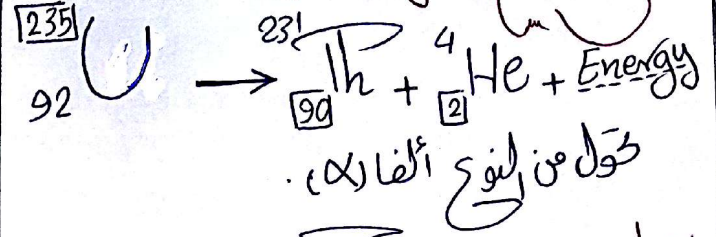 ²³⁵₉₂U → ²³¹₉₀Th + ⁴₂He + Energy
تحول من النوع ألفا (α).